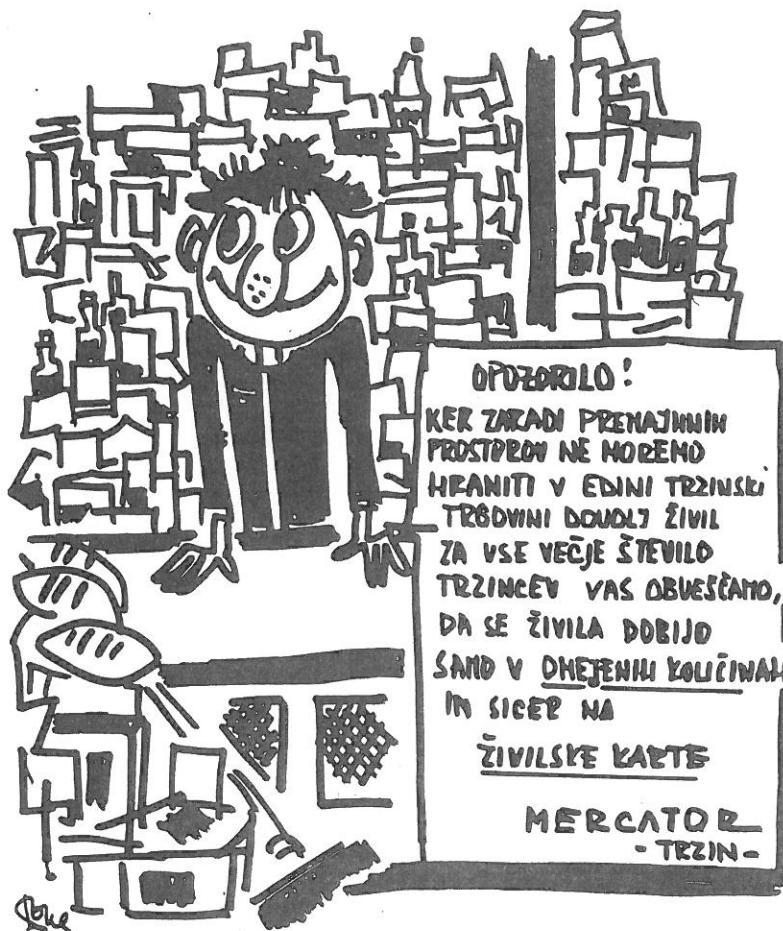 OPOZORILO!
KER ZARADI PREMAJHNIH
PROSTOROV NE MOREMO
HRANITI V EDINI TRZINSKI
TRGOVINI DOVOLJ ŽIVIL
ZA VSE VEČJE ŠTEVILO
TRZINCEV VAS OBVEŠČAMO,
DA SE ŽIVILA DOBIJO
SAMO V OMEJENIH KOLIČINAH
IN SICER NA
ŽIVILSKE KARTE
MERCATOR
- TRZIN -